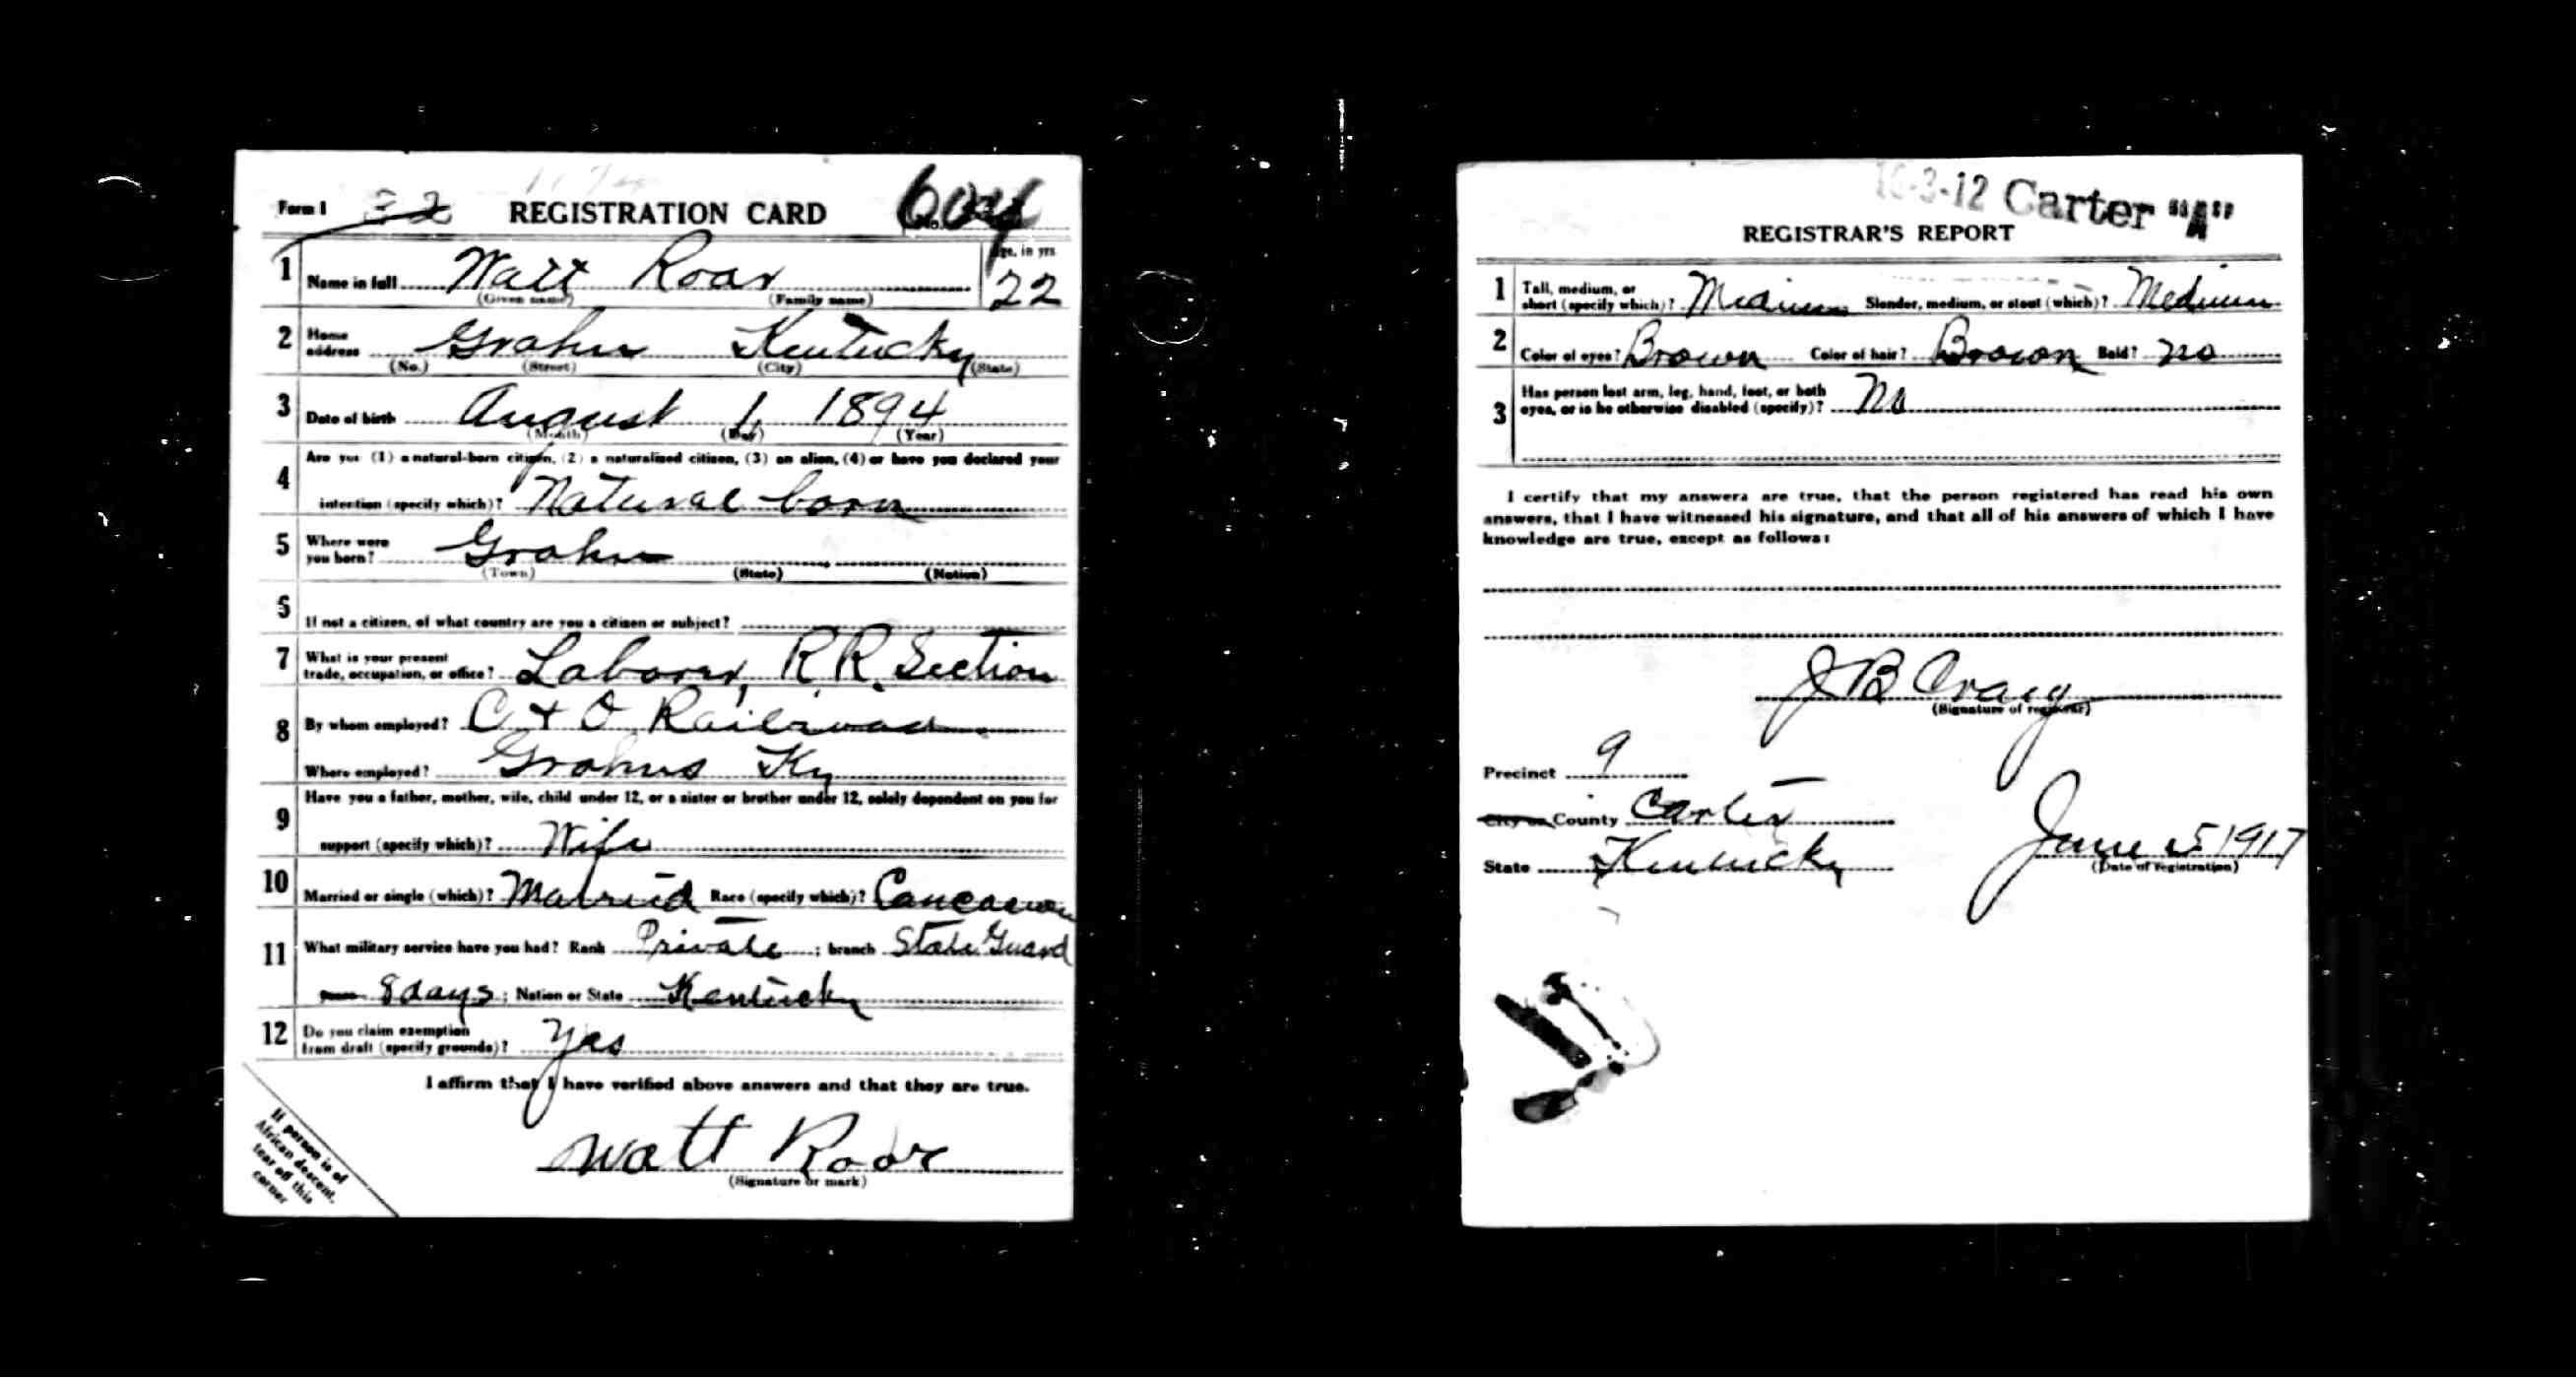 Form 1 32 REGISTRATION CARD No. 604
1 Name in full Watt Roar Age, in yrs. 22
(Given name) (Family name)
2 Home address Grahn Kentucky
(No.) (Street) (City) (State)
3 Date of birth August 1, 1894
(Month) (Day) (Year)
4 Are you (1) a natural-born citizen, (2) a naturalized citizen, (3) an alien, (4) or have you declared your
intention (specify which)? Natural born
5 Where were you born? Grahn
(Town) (State) (Nation)
6 If not a citizen, of what country are you a citizen or subject?
7 What is your present trade, occupation, or office? Laborer, R.R. Section
8 By whom employed? C + O Railroad
Where employed? Grahns Ky
9 Have you a father, mother, wife, child under 12, or a sister or brother under 12, solely dependent on you for
support (specify which)? Wife
10 Married or single (which)? Married Race (specify which)? Caucasian
11 What military service have you had? Rank Private ; branch State Guard
8 days ; Nation or State Kentucky
12 Do you claim exemption from draft (specify grounds)? Yes
I affirm that I have verified above answers and that they are true.
Watt Roar
(Signature or mark)
If person is of
African descent,
tear off this
corner
Carter "A"
REGISTRAR'S REPORT
1 Tall, medium, or short (specify which)? Medium Slender, medium, or stout (which)? Medium
2 Color of eyes? Brown Color of hair? Brown Bald? no
3 Has person lost arm, leg, hand, foot, or both
eyes, or is he otherwise disabled (specify)? No
I certify that my answers are true, that the person registered has read his own
answers, that I have witnessed his signature, and that all of his answers of which I have
knowledge are true, except as follows:
J B Craig
(Signature of registrar)
Precinct 9
City or County Carter
State Kentucky June 5 1917
(Date of registration)